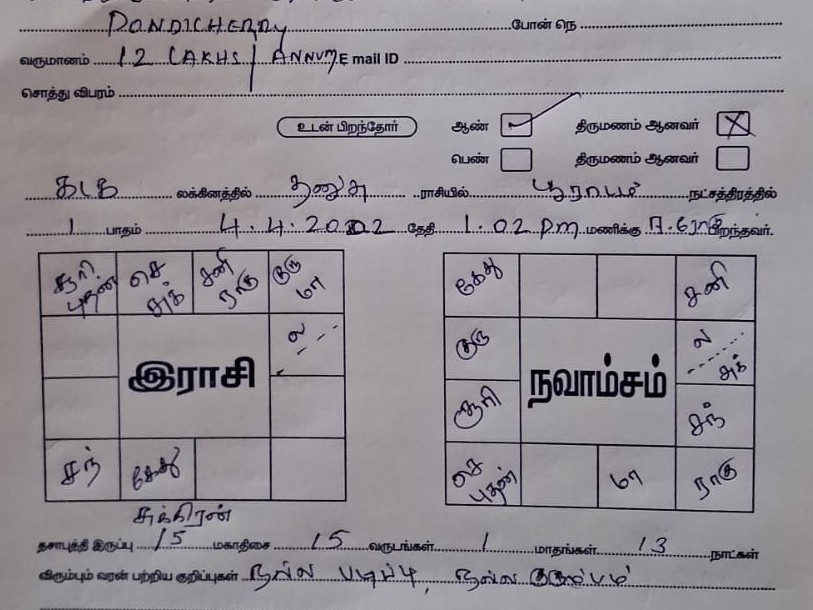 PONDICHERRY போன் நெ
வருமானம் 12 LAKHS / ANNUM E mail ID
சொத்து விபரம்
உடன் பிறந்தோர் ஆண் திருமணம் ஆனவர் X
பெண் திருமணம் ஆனவர்
கடக லக்கினத்தில் தனுசு ராசியில் பூராடம் நட்சத்திரத்தில்
1 பாதம் 4.4.2002 தேதி 1.02 Pm மணிக்கு பிறந்தவர்.
சூரி புதன் செ சுக் சனி ராகு குரு மா கேது சனி
ல குரு ல சுக்
இராசி நவாம்சம்
சூரி சந்
சந் கேது செ புதன் மா ராகு
சுக்கிரன்
தசாபுத்தி இருப்பு 15 மகாதிசை 15 வருடங்கள் 1 மாதங்கள் 13 நாட்கள்
விரும்பும் வரன் பற்றிய குறிப்புகள் நல்ல படிப்பு, நல்ல குடும்பம்